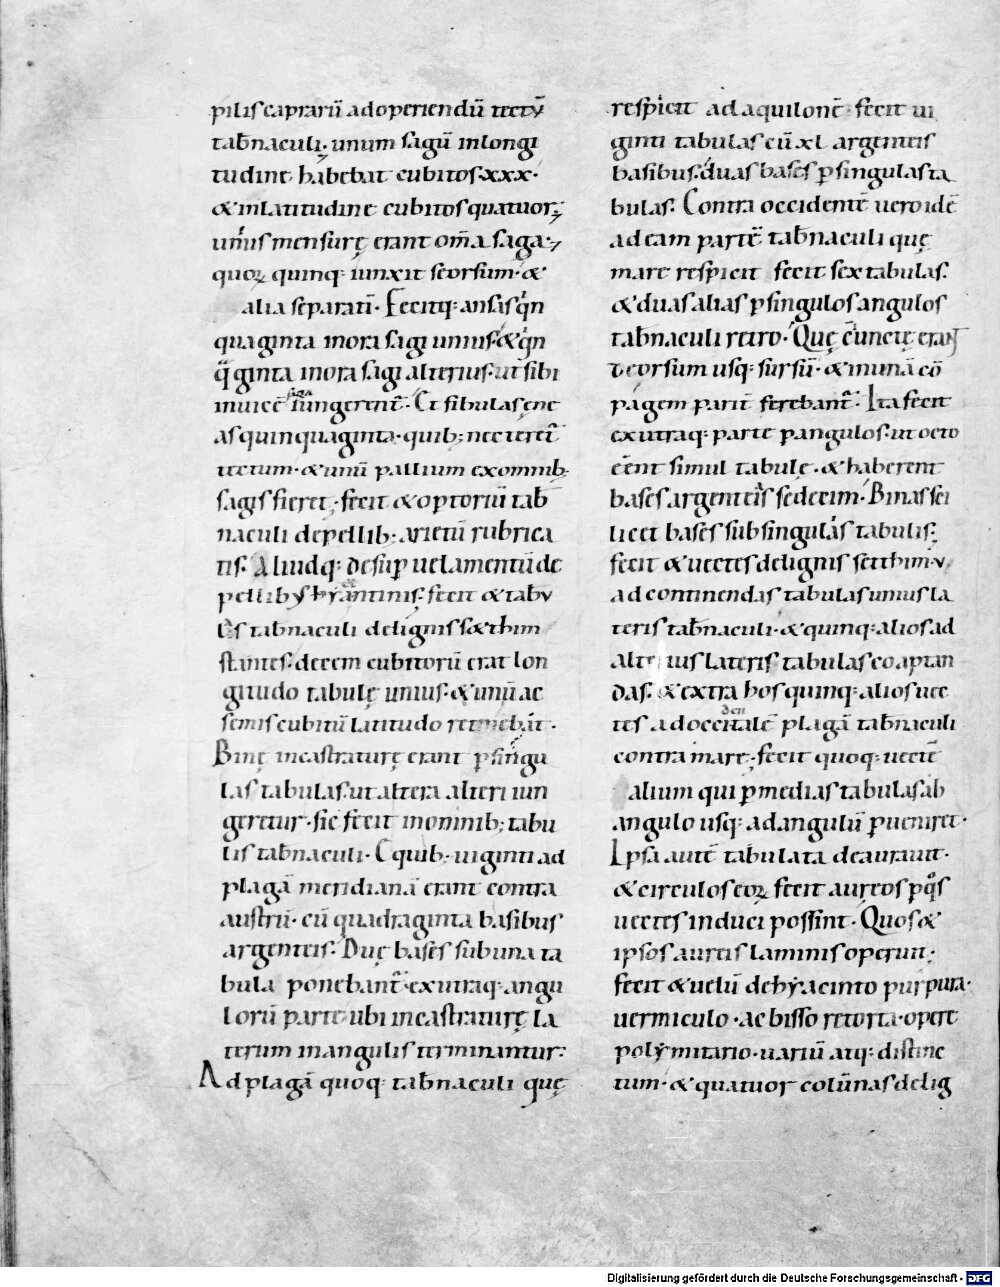 pilis caprarū ad operiendū tectū
tab̄naculi· unum sagū in longi
tudine habebat cubitos·xxx·
& in latitudine cubitos quatuor;
unius mensurę erant om̄a saga·
quoꝝ quinq: iunxit seorsum· &
alia separatī· Fecitq: ansas q̊n
quaginta in ora sagi unius·& q̊n
q̄ginta in ora sagi alterius· ut sibi
inuicē iungerent̄· Et fibulas ęne
as quinquaginta· quib; necterēt̄
tectum· & unū pallium ex omnib;
sagis fieret; fecit & optoriū tab̄
naculi de pellib· arietū rubrica
tis· Aliudq: desup̄ uelamentū de
pellibus hyantinis; fecit & tabu
las tab̄naculi de lignis s&him
stantes· decem cubitorū erat lon
gitudo tabulę unius· & unū ac
semis cubitū latitudo retinebat·
Binę incastraturę erant p̱ singu
las tabulas· ut altera alteri iun
geretur· sic fecit in omnib; tabu
lis tab̄naculi· E quib; uiginti ad
plagā meridianā erant contra
austrū· cū quadraginta basibus
argenteis· Duę bases sub una ta
bula ponebant̄· ex utraq: angu
lorū parte ubi incastraturę la
terum in angulis terminantur:
Ad plagā quoq: tab̄naculi quę
respicit ad aquilonē fecit ui
ginti tabulas cū xl argenteis
basibus· duas bases p̱ singulas ta
bulas· Contra occidentē uero idē
ad eam partē tab̄naculi quę
mare respicit fecit sex tabulas·
& duas alias p̱ singulos angulos
tab̄naculi retro· Quę c̄iunctę erant
deorsum usq: sursū· & in unā cō
pagem parit̄ ferebant̄· Ita fecit
ex utraq: parte p̱ angulos· ut octo
eēnt simul tabulę· & haberent
bases argenteas sedecim· Binas sci
licet bases sub singulis tabulis;
fecit & uectes de lignis setthim·v·
ad continendas tabulas unius la
teris tab̄naculi· & quinq: alios ad
alterius lateris tabulas coaptan
das· & extra hos quinq: alios uec
tes ad occidentalē plagā tab̄naculi
contra mare; fecit quoq: uectē
alium qui p̱ medias tabulas ab
angulo usq: ad angulū p̱ueniret·
Ipsa autē tabulata deaurauit·
& circulos eoꝝ fecit aureos p̱ q̊s
uectes induci possint· Quos &
ipsos aureis laminis operuit;
fecit & uelū de hyacinto purpura·
uermiculo· ac bisso retorta· opere
polymitario· uariū atq: distinc
tum· & quatuor colūnas de lig